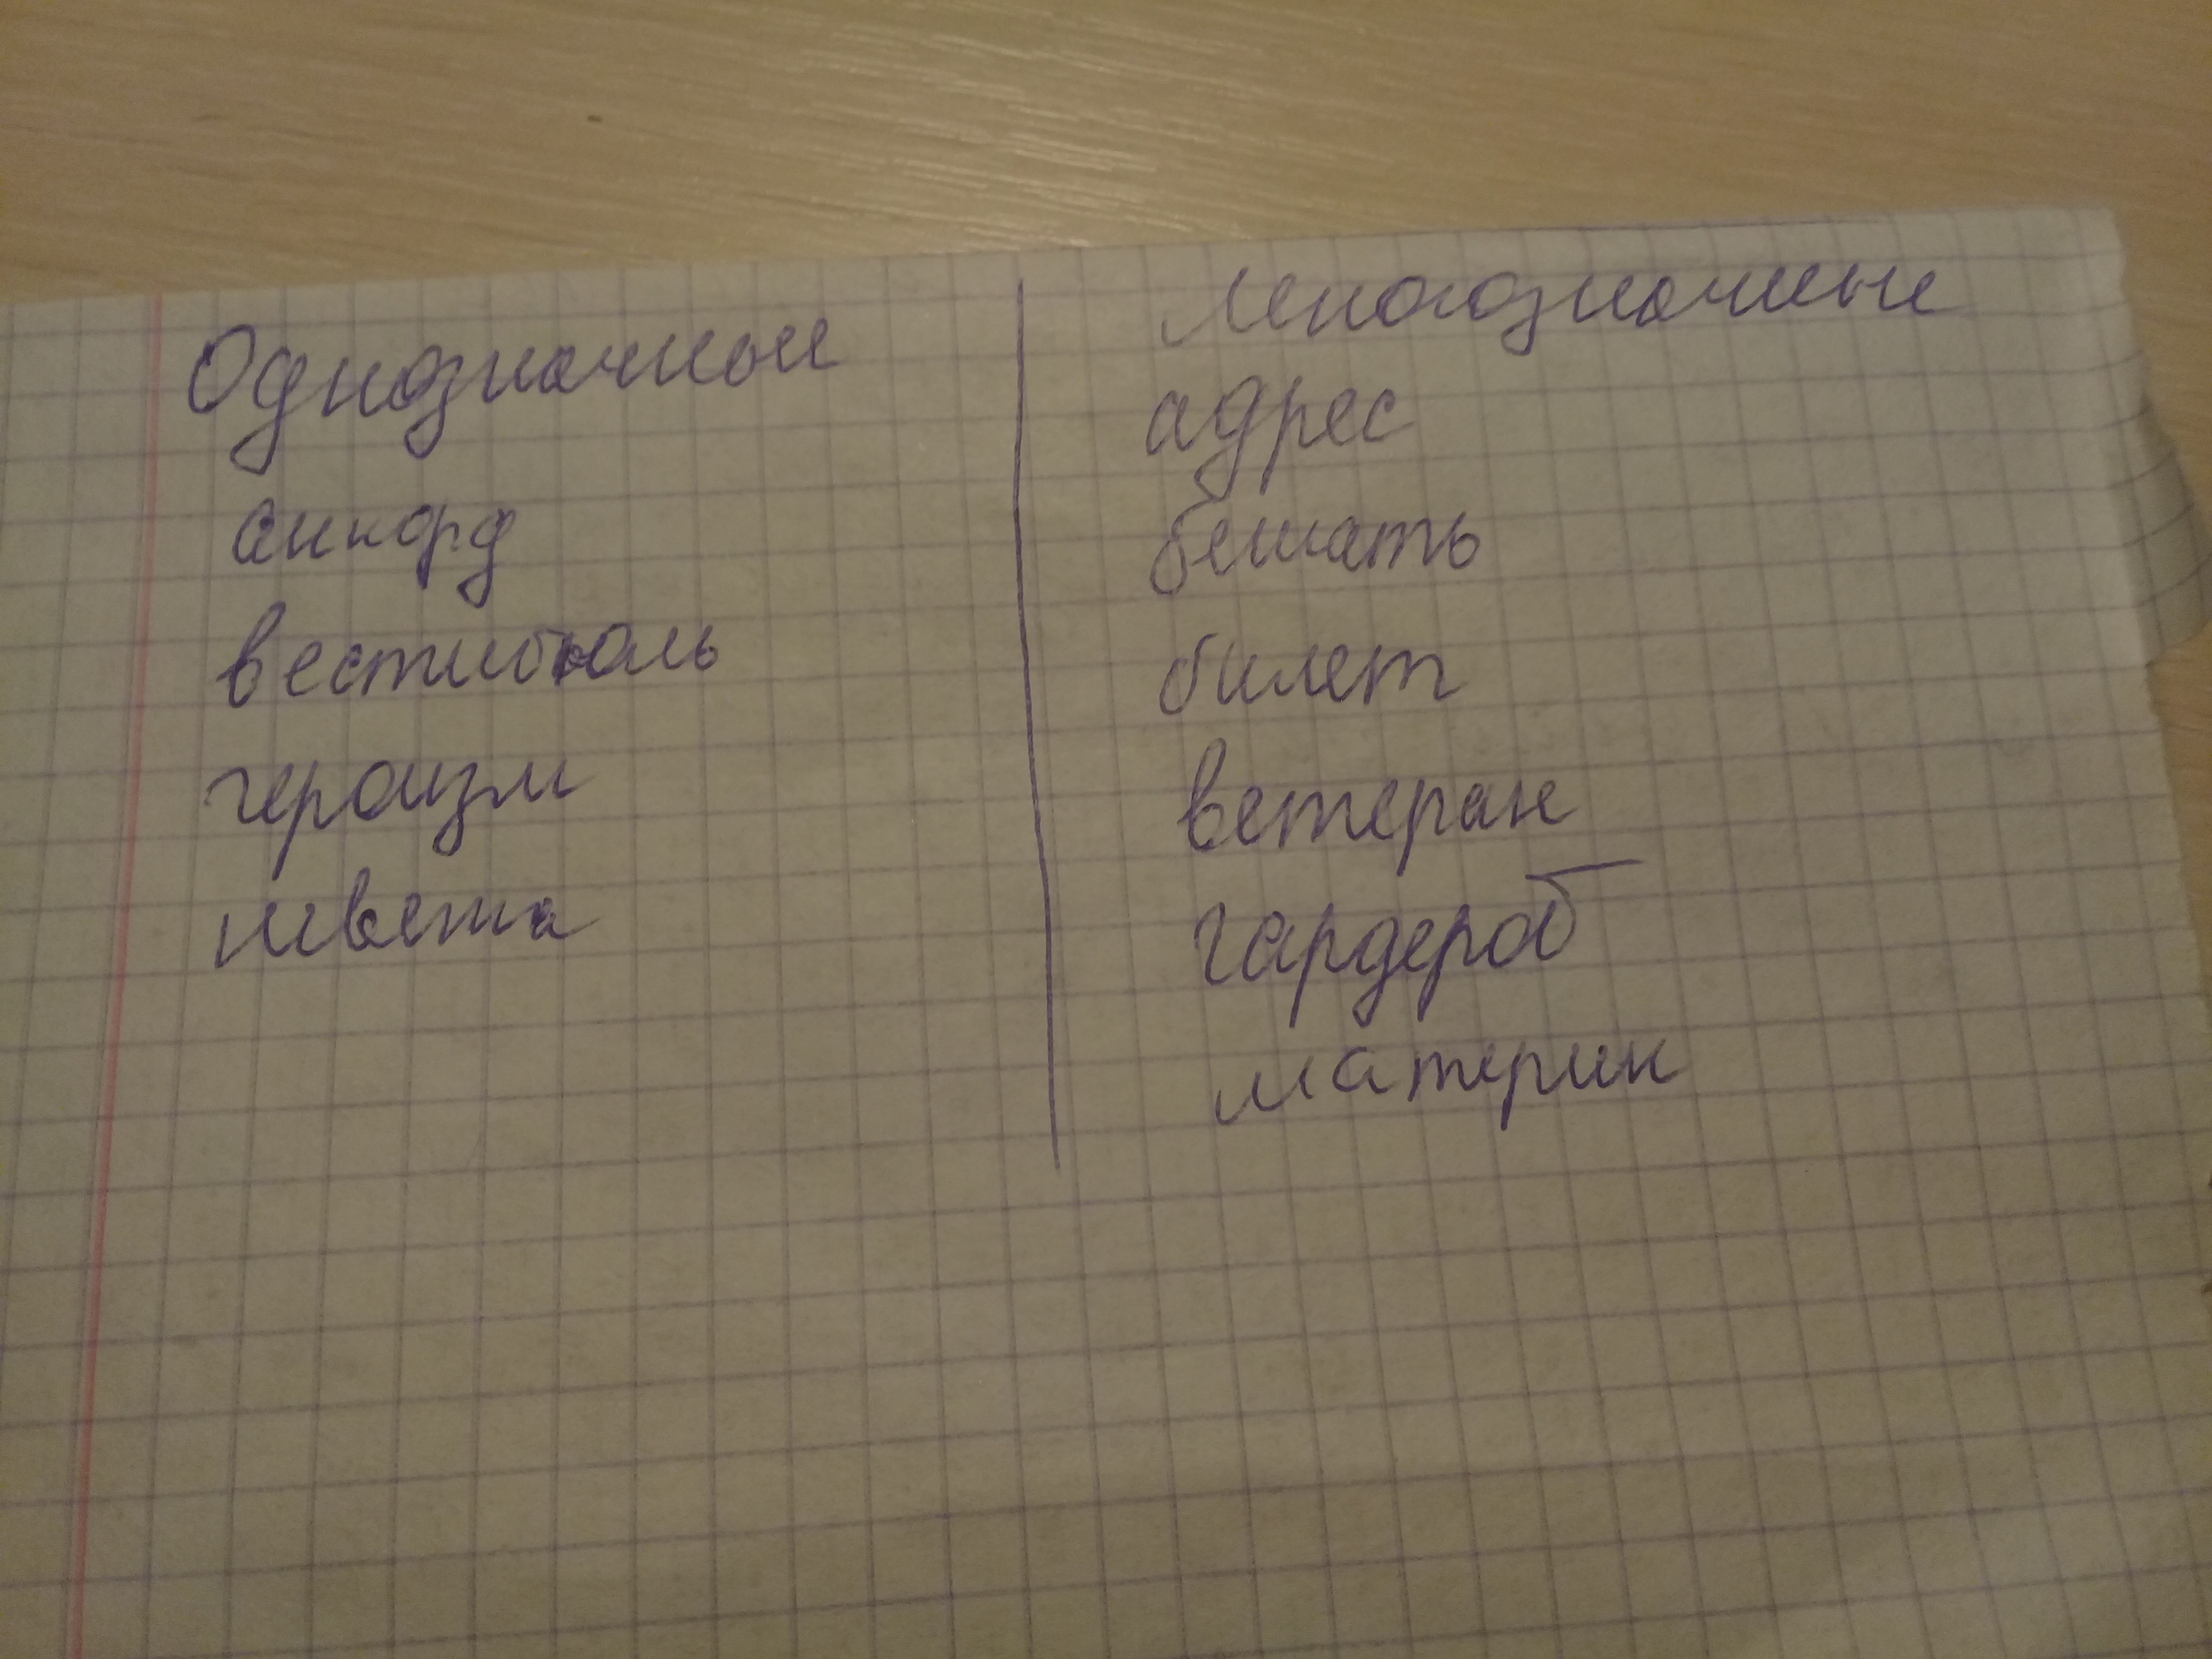 Однозначные
аккорд
вестибюль
героизм
Многозначные
адрес
бежать
билет
ветеран
гардероб
материк